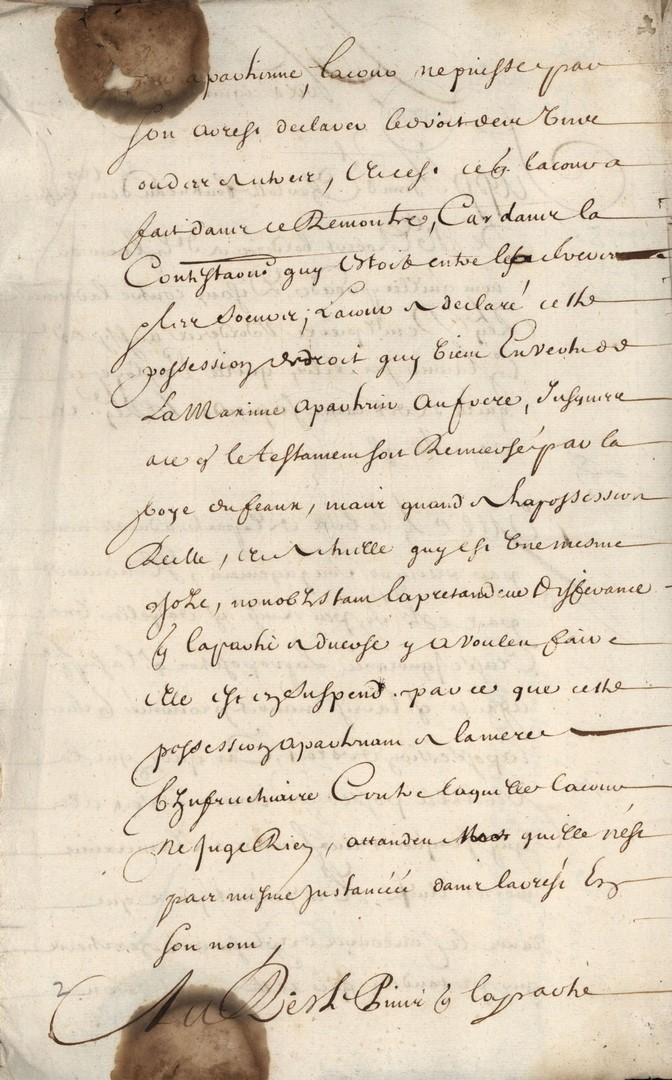 apartienne, la cour ne puisse par
son arrest declarer le droit deue a un
ou der autreir, et c'est ce q la cour a
fait danr ce Remontre, Car danr la
Contestaon guy Estoit entre les
la cour a declaré cette
possession de droit guy vien En vertu de
La Maxime apartenir au frere, Jusques
ace q le testament soit Renversé par la
voye du feaux, mair quand a la possession
Reelle, et actuelle guy est Une mesme
choze, nonobstant la pretendeue diferance
q la partie aduerse y a vouleu faire
elle est en suspend. par ce que cette
possession apartenant a la mere
Vzufructiaire Contre laquelle la cour
ne juge Rien, attandeu quelle n'est
pair mesme jnstanciée danr l'arest En
son nom
Au Reste Puir q la partie